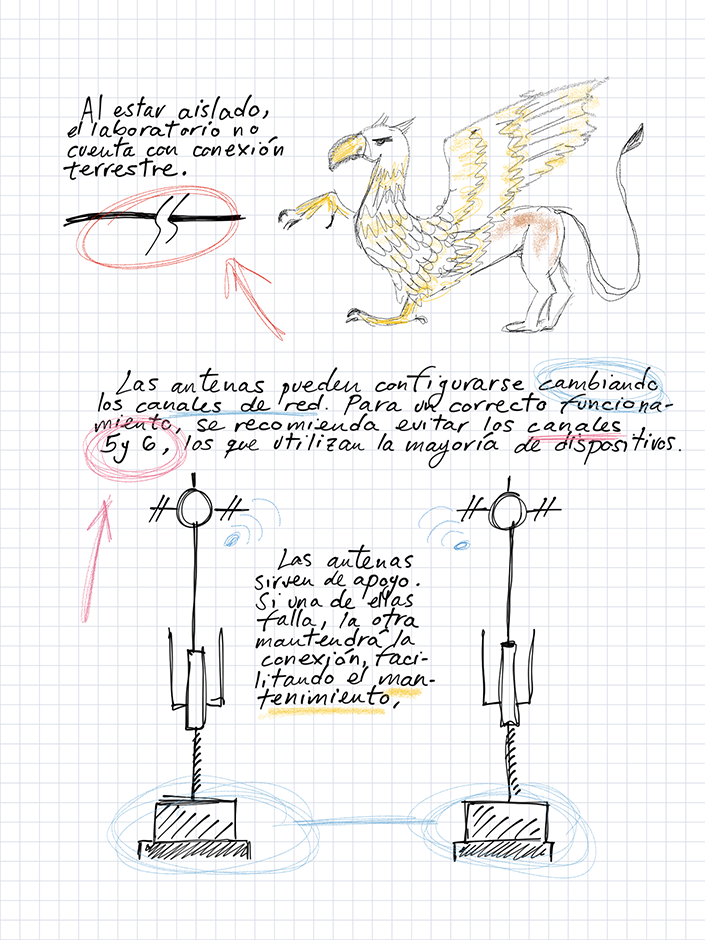 Al estar aislado,
el laboratorio no
cuenta con conexión
terrestre.
Las antenas pueden configurarse cambiando
los canales de red. Para un correcto funciona-
miento, se recomienda evitar los canales
5 y 6, los que utilizan la mayoría de dispositivos.
Las antenas
sirven de apoyo.
Si una de ellas
falla, la otra
mantendrá la
conexión, faci-
litando el man-
tenimiento,